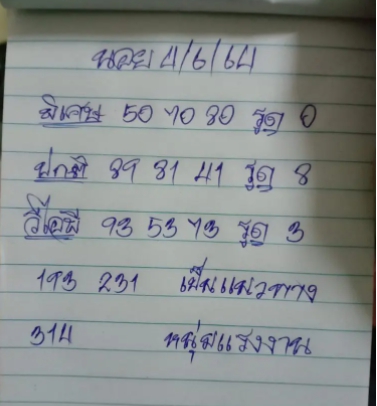 นอย 4/6/64
พิเศษ 50 70 30 รูด 0
ปกติ 39 31 41 รูด 8
วีไอพี 93 53 73 รูด 3
193 231 เป็นแนวทาง
314 หนุ่มแรงงาน